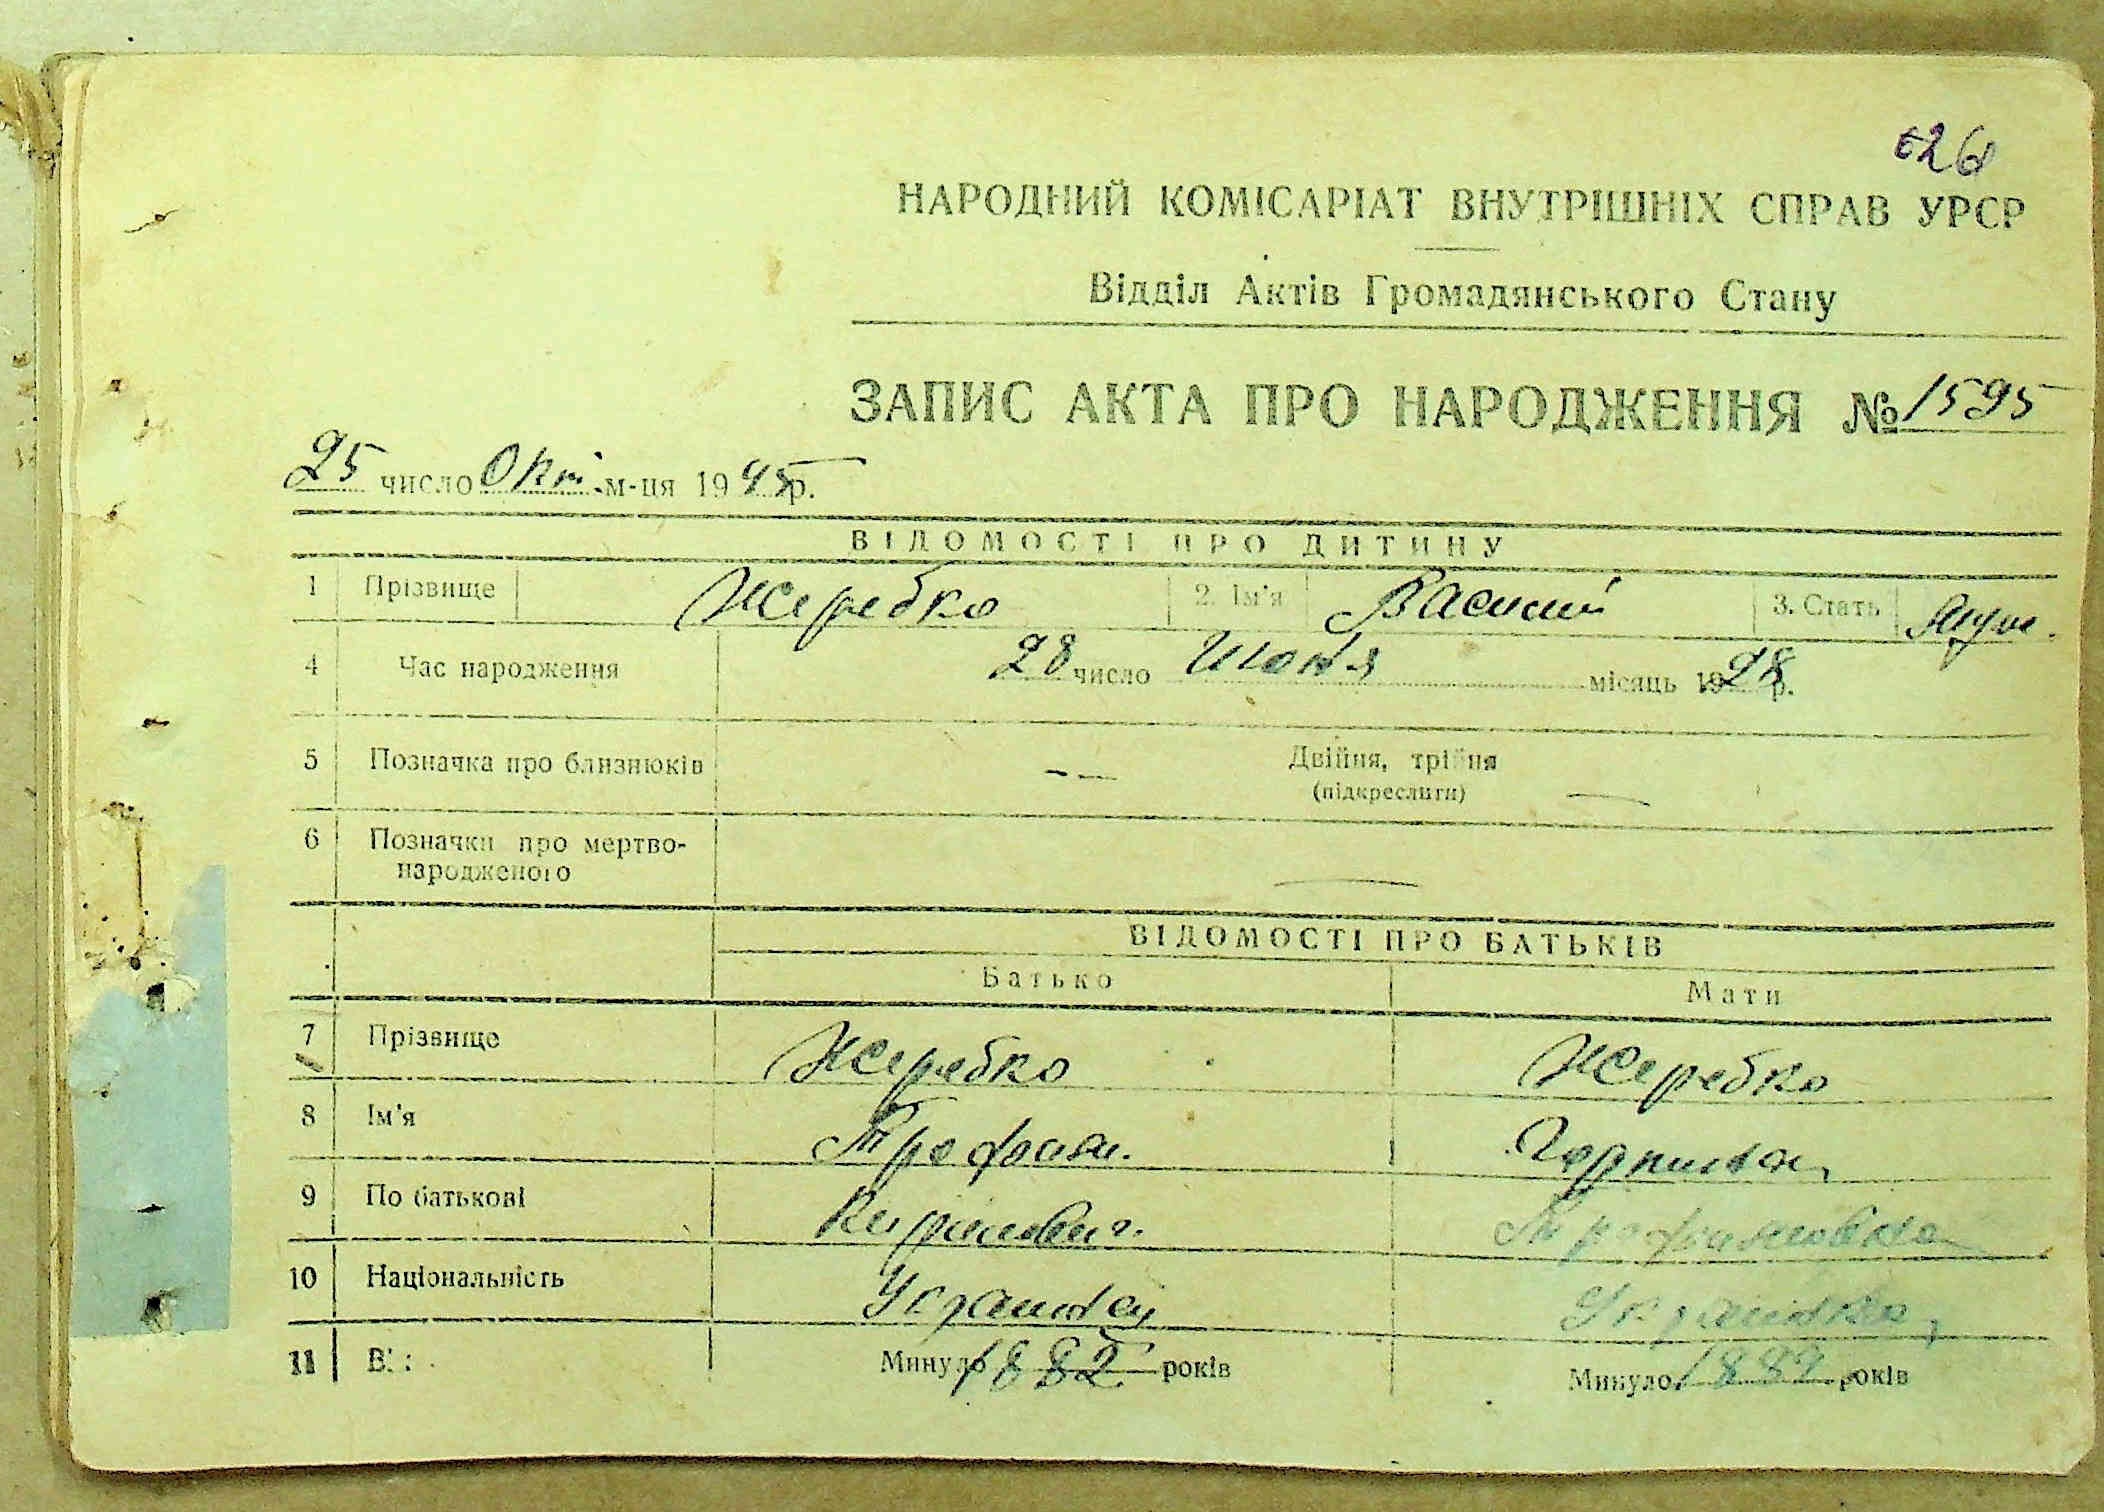 626
НАРОДНИЙ КОМІСАРІАТ ВНУТРІШНІХ СПРАВ УРСР
Відділ Актів Громадянського Стану
ЗАПИС АКТА ПРО НАРОДЖЕННЯ № 1595
25 число Окт. м-ця 1945 р.
ВІДОМОСТІ ПРО ДИТИНУ
1 Прізвище Жеребко 2. Ім'я Василий 3. Стать Муж.
4 Час народження 28 число Июня місяць 1928 р.
5 Позначка про близнюків — Двійня, трійня
(підкреслити) —
6 Позначки про мертво-
народженого —
ВІДОМОСТІ ПРО БАТЬКІВ
Батько Мати
7 Прізвище Жеребко Жеребко
8 Ім'я Трофим. Горпина
9 По батькові Кирилович. Трофимовна
10 Національність Украинец Украинка
11 Ві Минуло 1882 років Минуло 1889 років